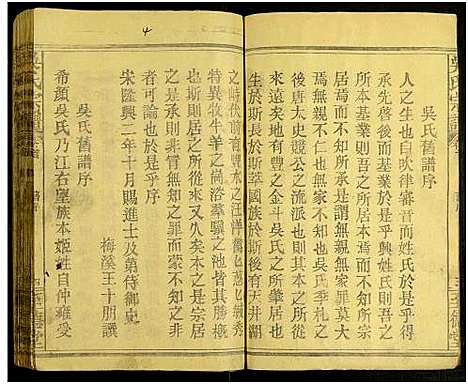 吳氏舊譜序
人之生也自吹律審音而姓氏於是乎
承先啓後而基業於是乎興姓則吾之
所本基業則吾之所居本居不知宗
而不知所承是謂無親罪無親不宗
焉無親罪不仁也無宗罪不智也吳氏
後唐太史競公之流派也則其本之所
來遠矣地有豐土之金斗吳氏之所肇居也
生於斯長於斯萃國族於斯後有天井湖
之特代前有豐水之汪洋
特異牧牛羊之尚浴華
也斯則宗居之所從來又久矣本之是宗居
之是承則非無罪而蒙不知之
者可論也於是乎序
宋隆興二年十月賜進士及第侍御史
梅溪王十朋譔
吳氏舊譜序
希顏吳氏乃江右望族本姬姓自仲雍受
吳氏宗譜